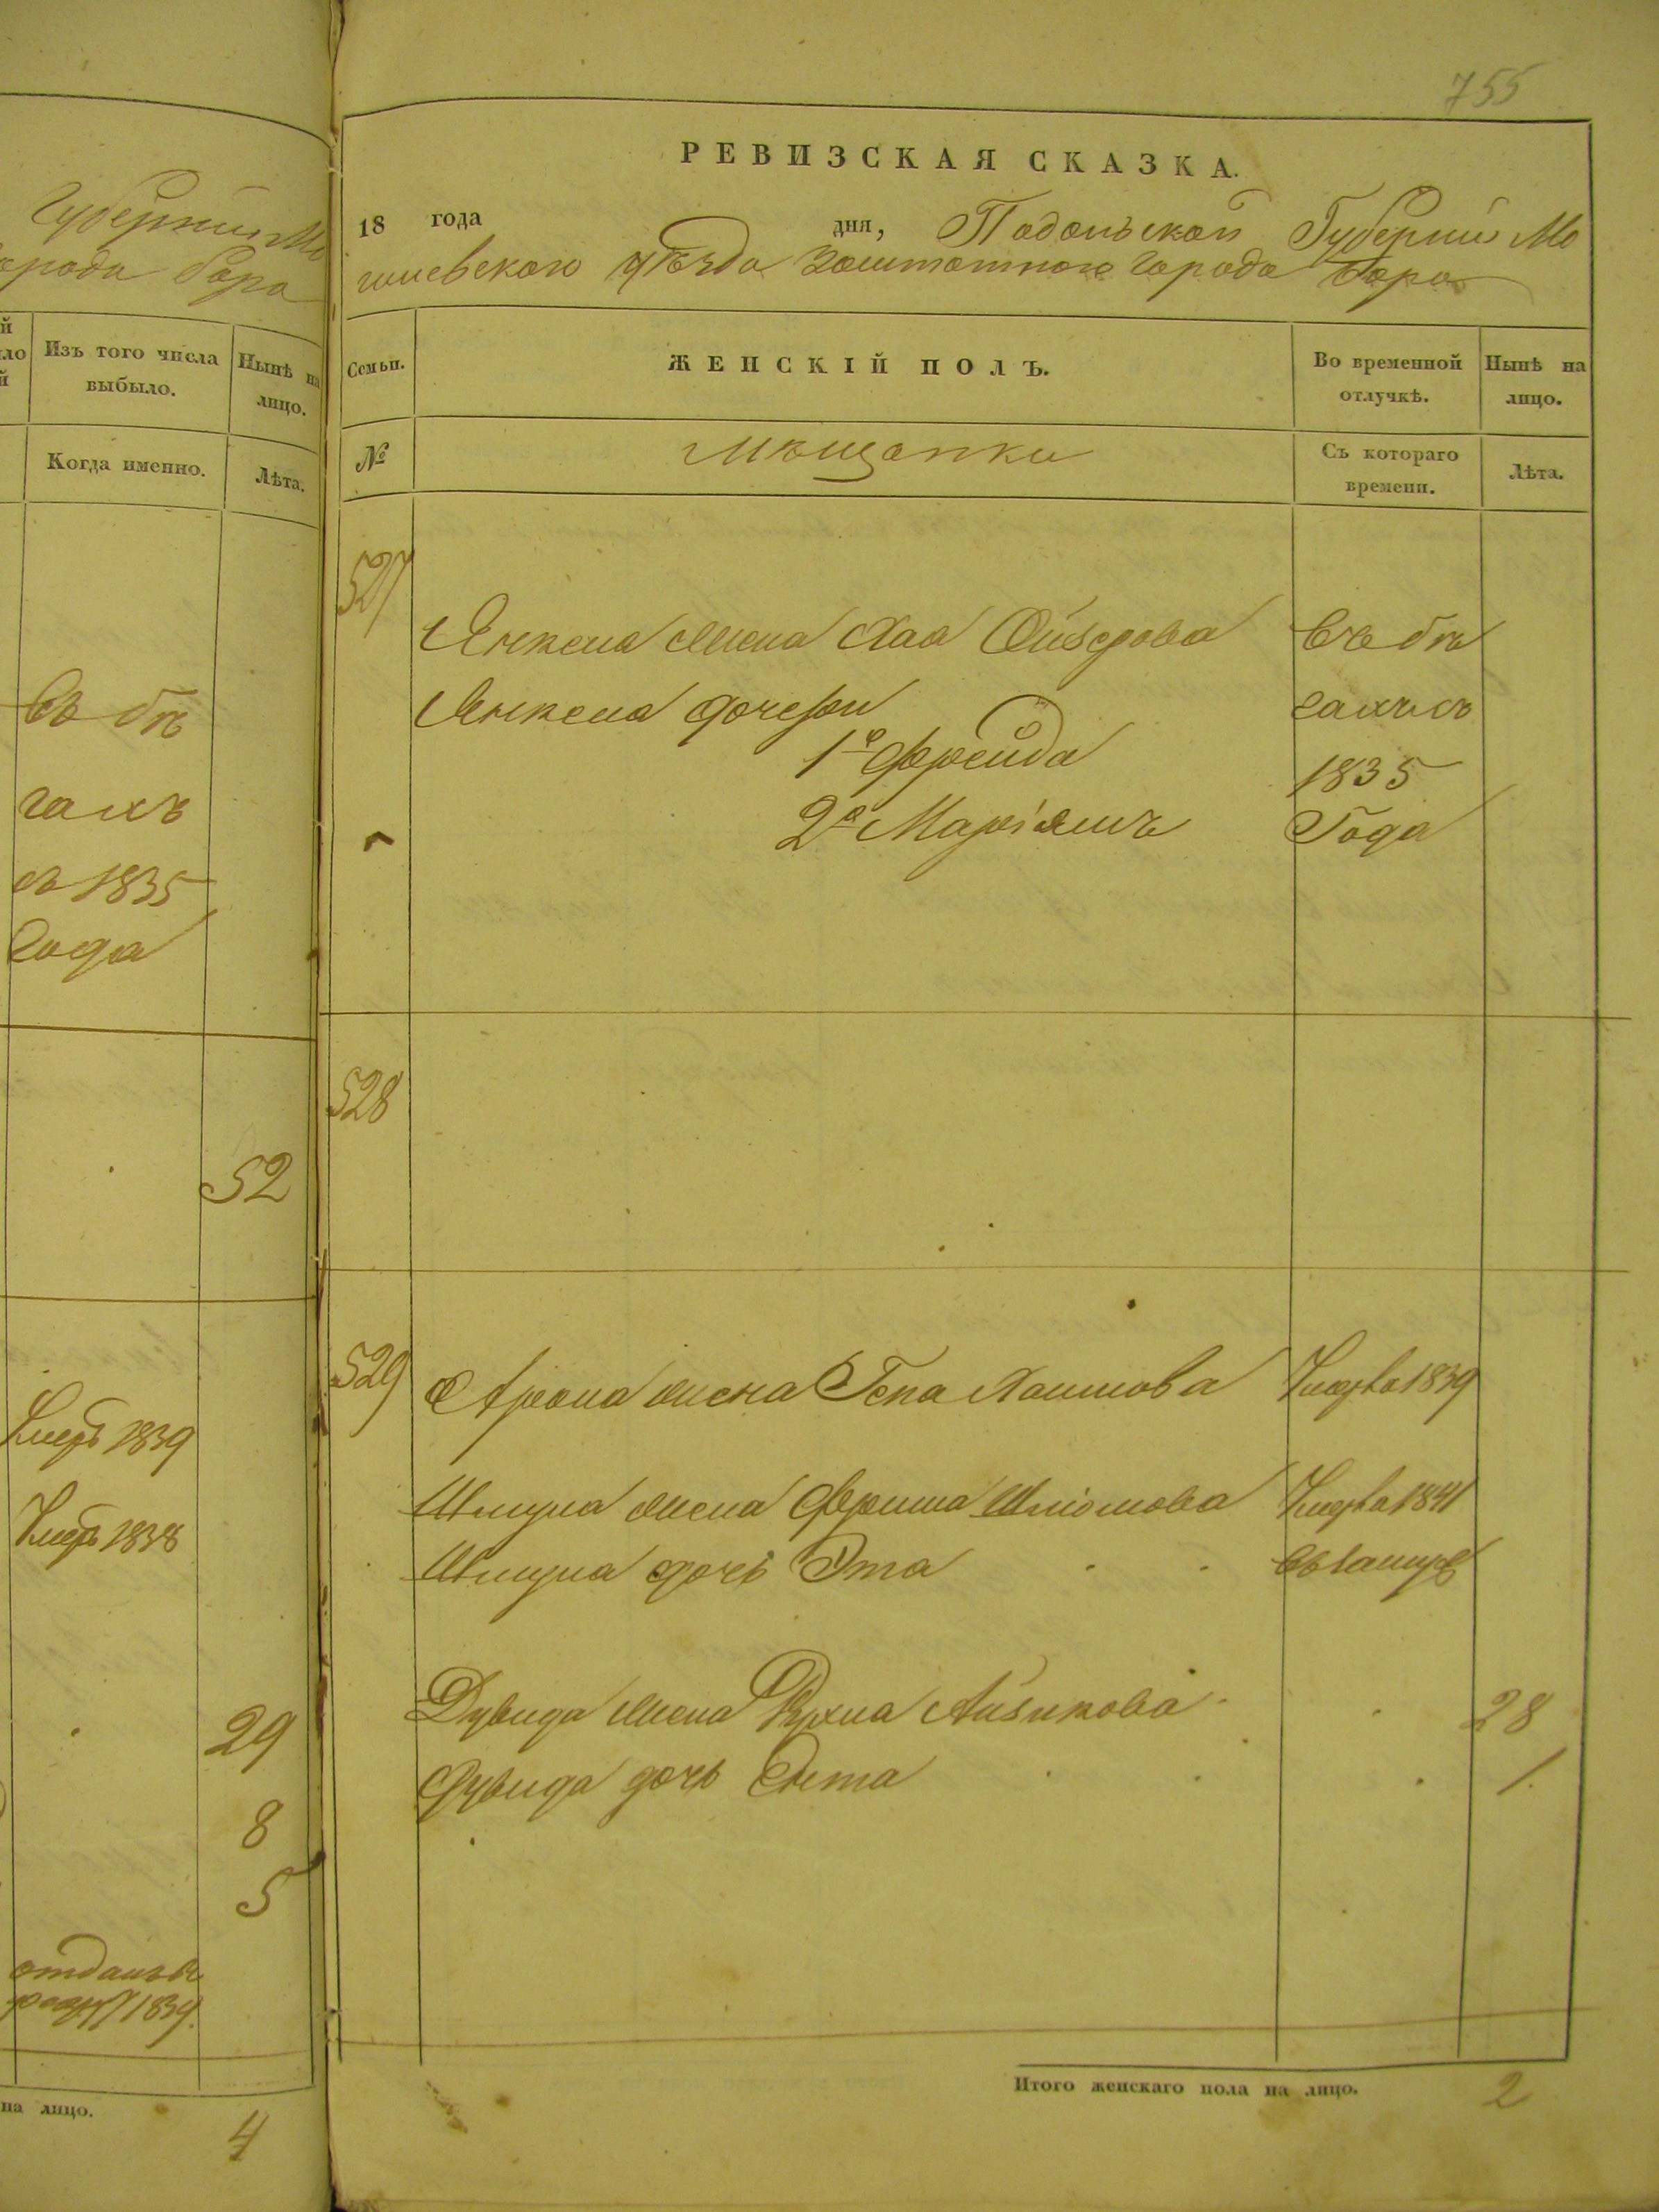 Губерніи Мо
города Бара
Изъ того числа
выбыло.
Нынѣ на
лицо.
Когда именно.
Лѣта.
Въ бѣ
гахъ
съ 1835
года
52
Умеръ 1839
Умеръ 1838
29
8
5
отданъ въ
1839.
на лицо.
4
755
РЕВИЗСКАЯ СКАЗКА.
18 года дня, Подольской Губерніи Мо
гилевскаго уѣзда заштатного города Бара
Семьи.
ЖЕНСКІЙ ПОЛЪ.
Во временной
отлучкѣ.
Нынѣ на
лицо.
№
Мѣщанки
Съ котораго
времени.
Лѣта.
527
Янкеля жена Хая Ойзерова Въ бѣ
Янкеля дочери гахъ съ
1я Фрейда 1835
2я Маріямъ Года
528
529
Арона жена Гена Хаимова Умерла 1839
Шмуля жена Фрима Шліомова Умерла 1841
Шмуля дочь Эта Въ замуж
Дувида жена Рухля Айзикова 28
Дувида дочь Ента 1.
Итого женскаго пола на лицо.
2